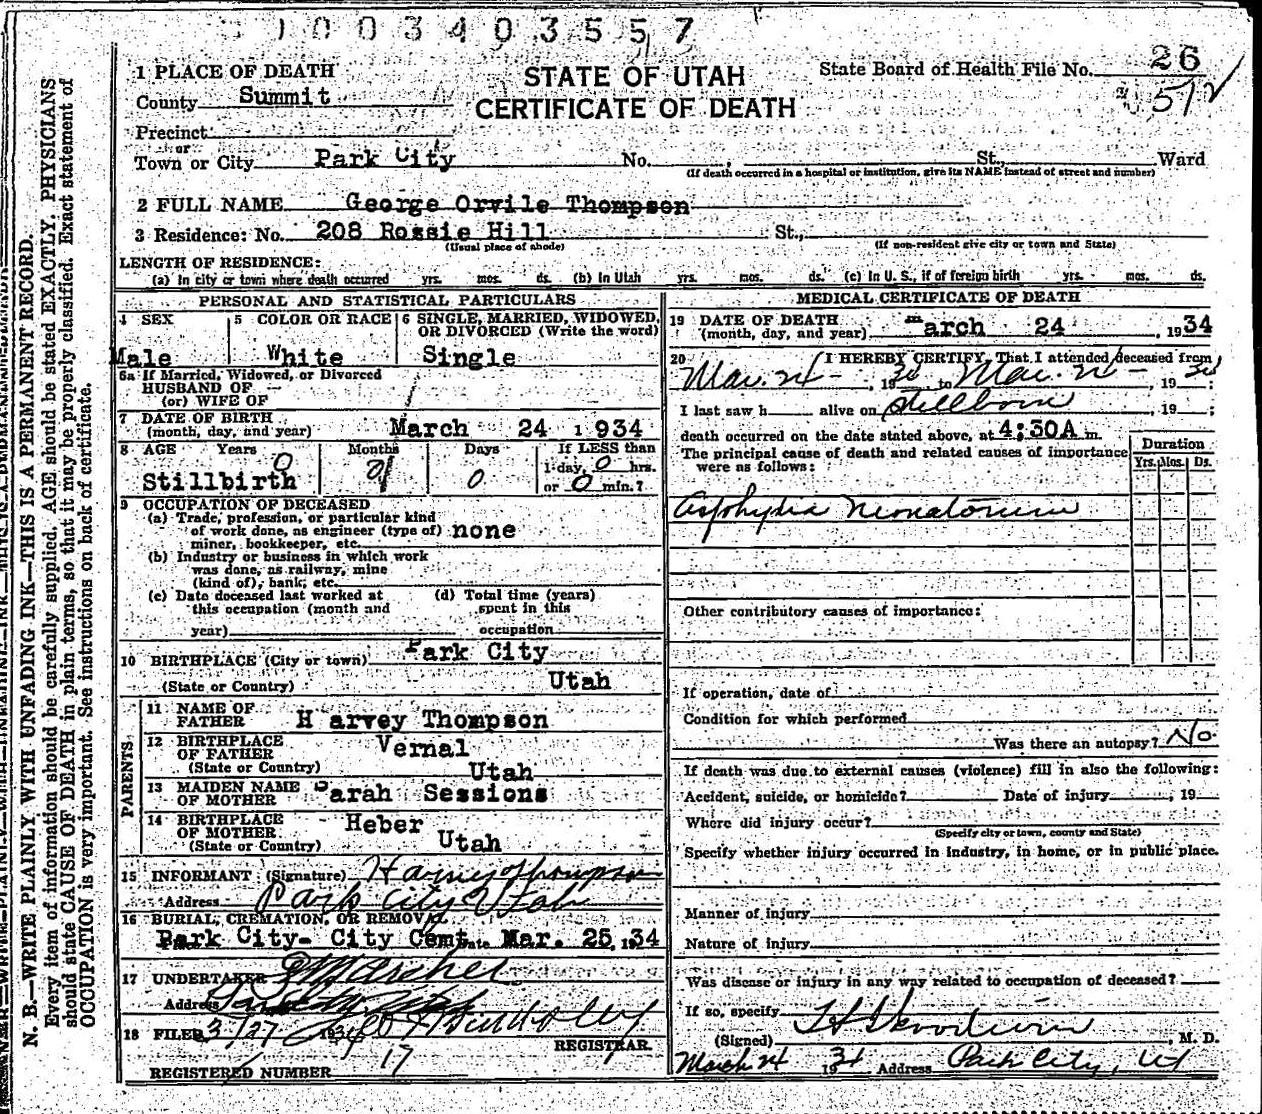 1003403557
1 PLACE OF DEATH
STATE OF UTAH
CERTIFICATE OF DEATH
State Board of Health File No. 26
512
County Summit
Precinct
or
Town or City Park City No. , St., Ward
(If death occurred in a hospital or institution, give its NAME instead of street and number)
2 FULL NAME George Orvile Thompson
3 Residence: No. 208 Rossie Hill St.,
(Usual place of abode) (If non-resident give city or town and State)
LENGTH OF RESIDENCE:
(a) In city or town where death occurred yrs. mos. ds. (b) In Utah yrs. mos. ds. (c) In U. S., if of foreign birth yrs. mos. ds.
PERSONAL AND STATISTICAL PARTICULARS
4 SEX
Male
5 COLOR OR RACE
White
6 SINGLE, MARRIED, WIDOWED,
OR DIVORCED (Write the word)
Single
6a If Married, Widowed, or Divorced
HUSBAND OF
(or) WIFE OF
7 DATE OF BIRTH
(month, day, and year) March 24 1934
8 AGE Years Months Days If LESS than
0 0 1 day, 0 hrs.
Stillbirth or 0 min.?
9 OCCUPATION OF DECEASED
(a) Trade, profession, or particular kind
of work done, as engineer (type of) none
miner, bookkeeper, etc.
(b) Industry or business in which work
was done, as railway, mine
(kind of), bank, etc.
(c) Date deceased last worked at (d) Total time (years)
this occupation (month and spent in this
year) occupation
10 BIRTHPLACE (City or town) Park City
(State or Country) Utah
PARENTS
11 NAME OF
FATHER Harvey Thompson
12 BIRTHPLACE
OF FATHER Vernal
(State or Country) Utah
13 MAIDEN NAME
OF MOTHER Sarah Sessions
14 BIRTHPLACE
OF MOTHER Heber
(State or Country) Utah
15 INFORMANT (Signature) Harvey Thompson
Address Park City Utah
16 BURIAL, CREMATION, OR REMOVAL
Park City- City Cemt Date Mar. 25, 1934
17 UNDERTAKER Archer
Address
18 FILED 3/27 1934
REGISTRAR.
REGISTERED NUMBER 17
MEDICAL CERTIFICATE OF DEATH
19 DATE OF DEATH
(month, day, and year) March 24 , 1934
20 I HEREBY CERTIFY, That I attended deceased from
Mar. 24 , 1934 to Mar. 24 , 1934;
I last saw h alive on Stillborn , 19 ;
death occurred on the date stated above, at 4:30A m.
The principal cause of death and related causes of importance
were as follows:
Duration
Yrs. Mos. Ds.
Asphyxia Neonatorum
Other contributory causes of importance:
If operation, date of
Condition for which performed
Was there an autopsy? No
If death was due to external causes (violence) fill in also the following:
Accident, suicide, or homicide? Date of injury , 19
Where did injury occur?
(Specify city or town, county and State)
Specify whether injury occurred in industry, in home, or in public place.
Manner of injury
Nature of injury
Was disease or injury in any way related to occupation of deceased?
If so, specify
(Signed) , M. D.
March 24 1934 Address Park City, Ut
N. B.—WRITE PLAINLY, WITH UNFADING INK—THIS IS A PERMANENT RECORD.
Every item of information should be carefully supplied. AGE should be stated EXACTLY. PHYSICIANS
should state CAUSE OF DEATH in plain terms, so that it may be properly classified. Exact statement of
OCCUPATION is very important. See instructions on back of certificate.